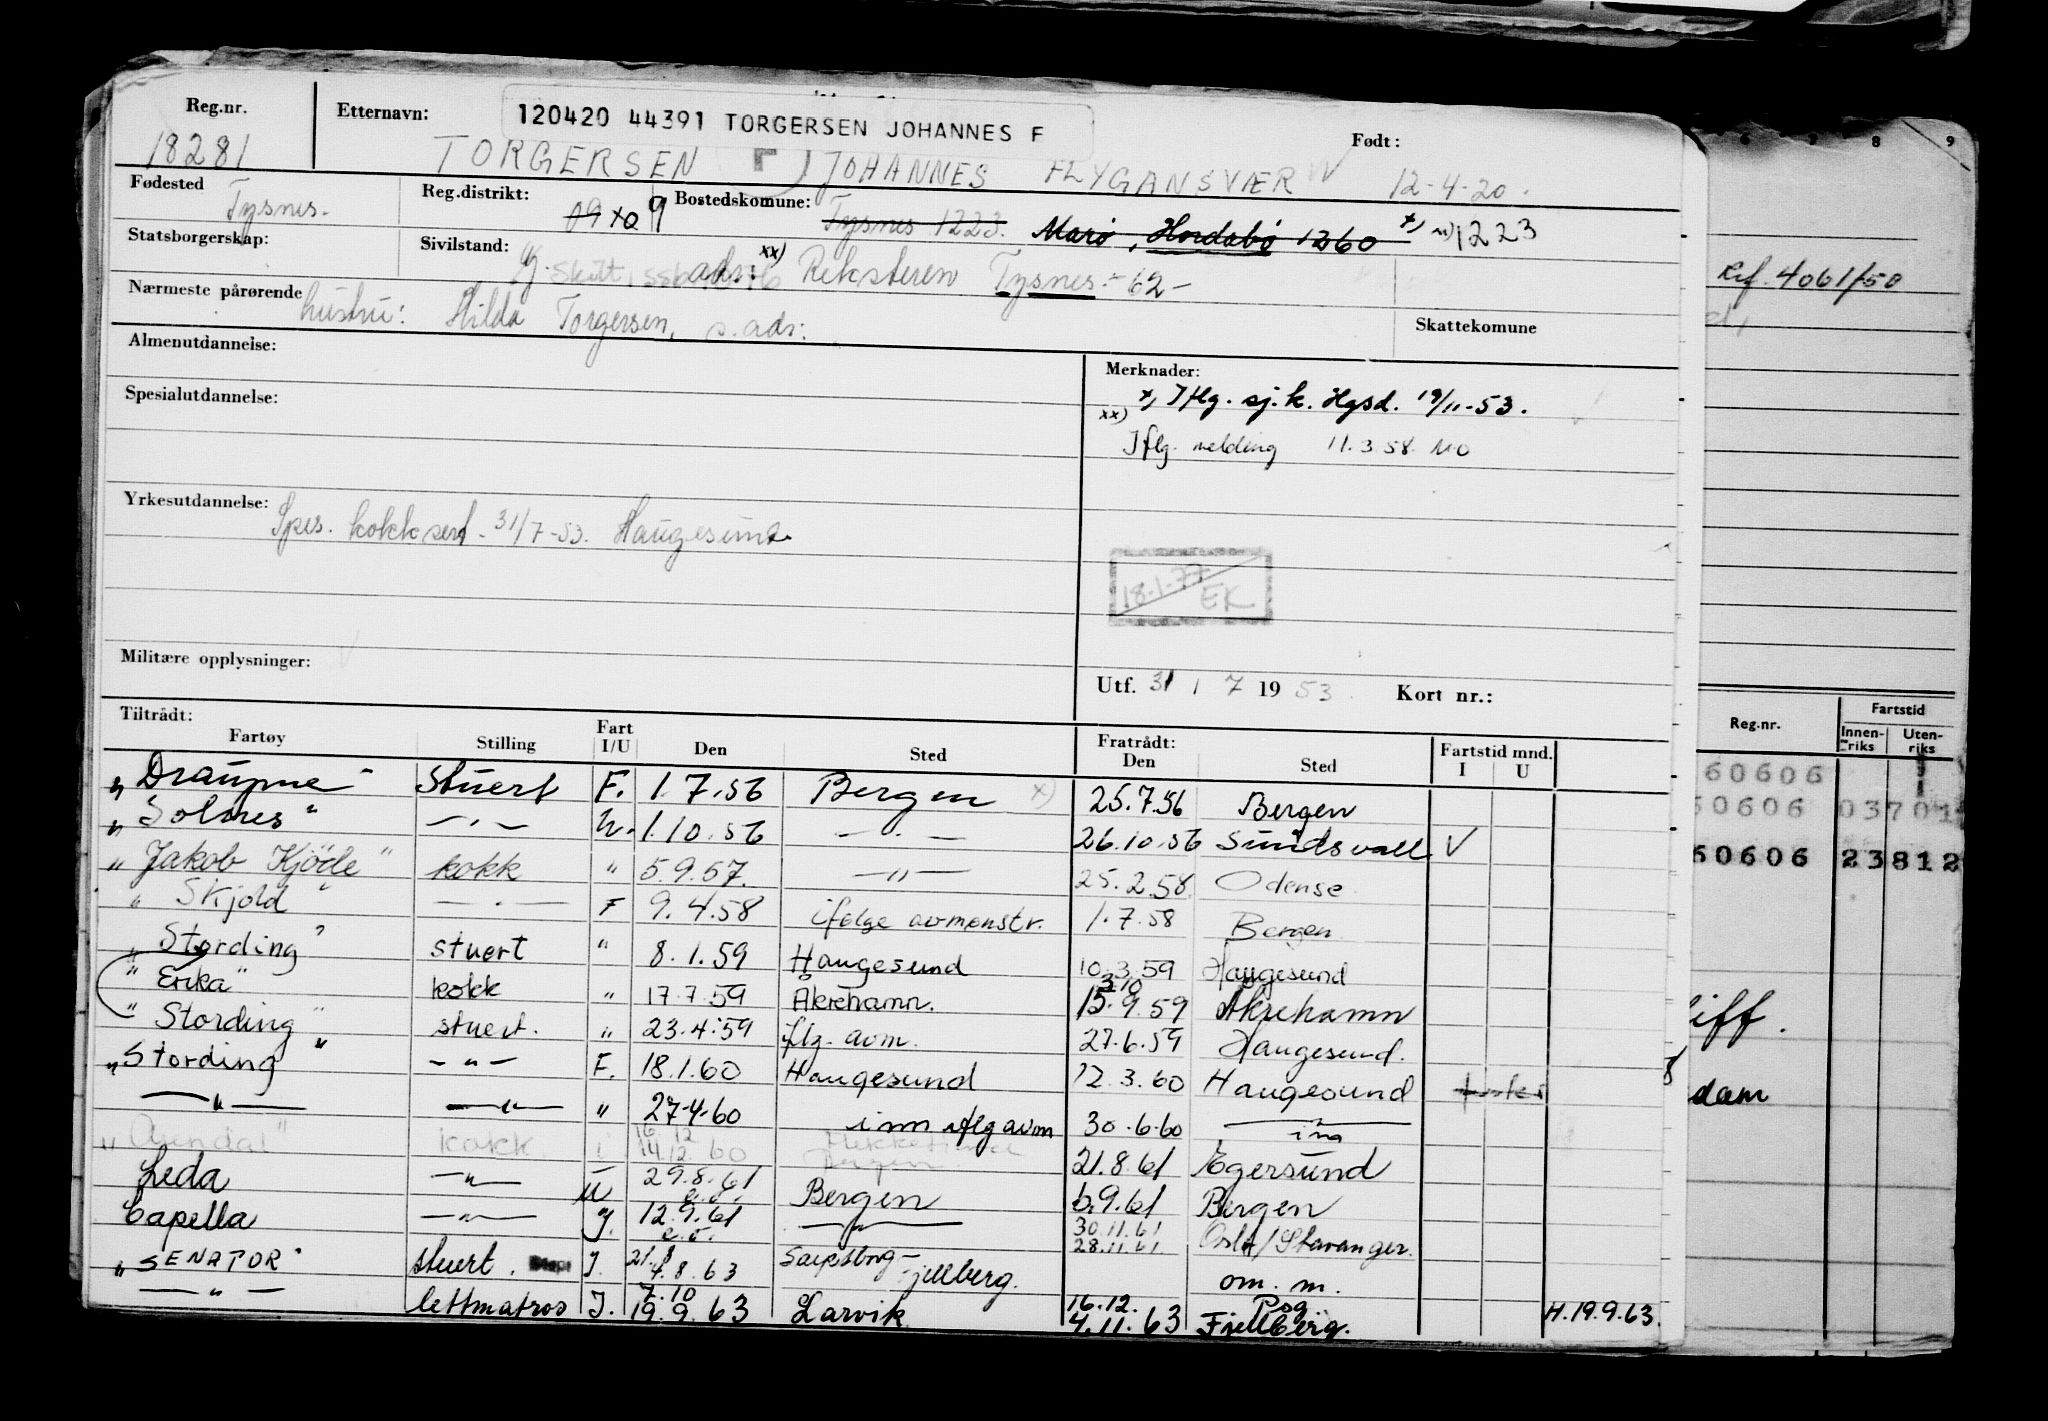 Reg.nr. Etternavn: 120420 44391 TORGERSEN JOHANNES F Født:
18281 TORGERSEN JOHANNES FLYGANSVÆR 12-4-20.
Fødested Tysnes. Reg.distrikt: 09 x09 Bostedskomune: Tysnes 1223. Marø, Hordabø 1260 x) 1223
Statsborgerskap: Sivilstand: g. adr: xx) Reksteren Tysnes - 62 -
Nærmeste pårørende hustru: Hilda Torgersen, s. adr: Skattekomune
Almenutdannelse: Merknader:
x) Iflg. sj.k. Hgsd. 19/11-53.
Spesialutdannelse: xx)
Iflg. melding 11.3.58. MO
Yrkesutdannelse: Spes. kokksert. 31/7-53. Haugesund.
18-1-77 EK
Militære opplysninger: Utf. 31 / 7 19 53. Kort nr.:
Tiltrådt: Fratrådt:
Fartøy Stilling Fart I/U Den Sted Den Sted Fartstid mnd. I U
"Draupne" Stuert F. 1.7.56 Bergen x) 25.7.56 Bergen
"Solnes" -"- U. 1.10.56 -"- 26.10.56 Sundsvall V
"Jakob Kjöde" kokk " 5.9.57. -"- 25.2.58. Odense
"Skjold" -"- F 9.4.58 ifølge avmønstr. 1.7.58 Bergen
"Stording" stuert " 8.1.59 Haugesund 10.3.59 Haugesund
"Erika" kokk " 17.7.59 Åkrehamn. 3.10 15.9.59 Åkrehamn
"Stording" stuert. " 23.4.59 flg. avm. 27.6.59 Haugesund.
"Stording" -"- F. 18.1.60 Haugesund 12.3.60 Haugesund
-"- -"- " 27-4-60 iflg avm 30.6.60 -"-
kokk 16.12 14.12.60 Bergen 21.8.61 Egersund
Leda -"- U 29.8.61 e.o. Bergen 6.9.61 Bergen
Capella -"- I. 12.9.61 e.o. -"- 30.11.61 28.11.61 Oslo/Stavanger.
"SENATOR" stuert. I. 21.8 4.8.63 Sarpsborg - Fjellberg. om. m.
-"- lettmatros I. 7.10 19.9.63 Larvik 16.12. 4.11.63 Pog. Fjellberg. H.19.9.63.
6 8 9
Ref. 4061/50
Reg.nr. Fartstid
Innenriks Utenriks
60606
60606 03701
60606 23812
iff.
dam